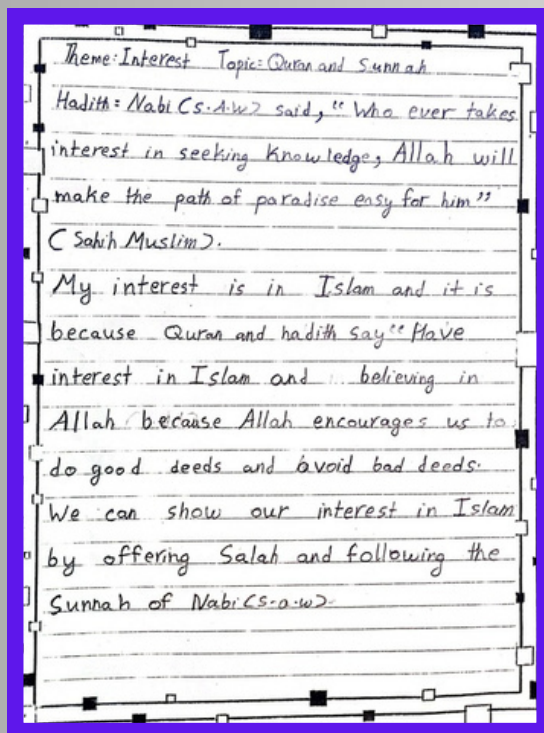 Theme: Interest Topic: Quran and Sunnah
Hadith: Nabi (S.A.W) said, "Who ever takes
interest in seeking Knowledge, Allah will
make the path of paradise easy for him"
(Sahih Muslim).
My interest is in Islam and it is
because Quran and hadith say "Have
interest in Islam and believing in
Allah because Allah encourages us to
do good deeds and avoid bad deeds.
We can show our interest in Islam
by offering Salah and following the
Sunnah of Nabi (S.a.w).